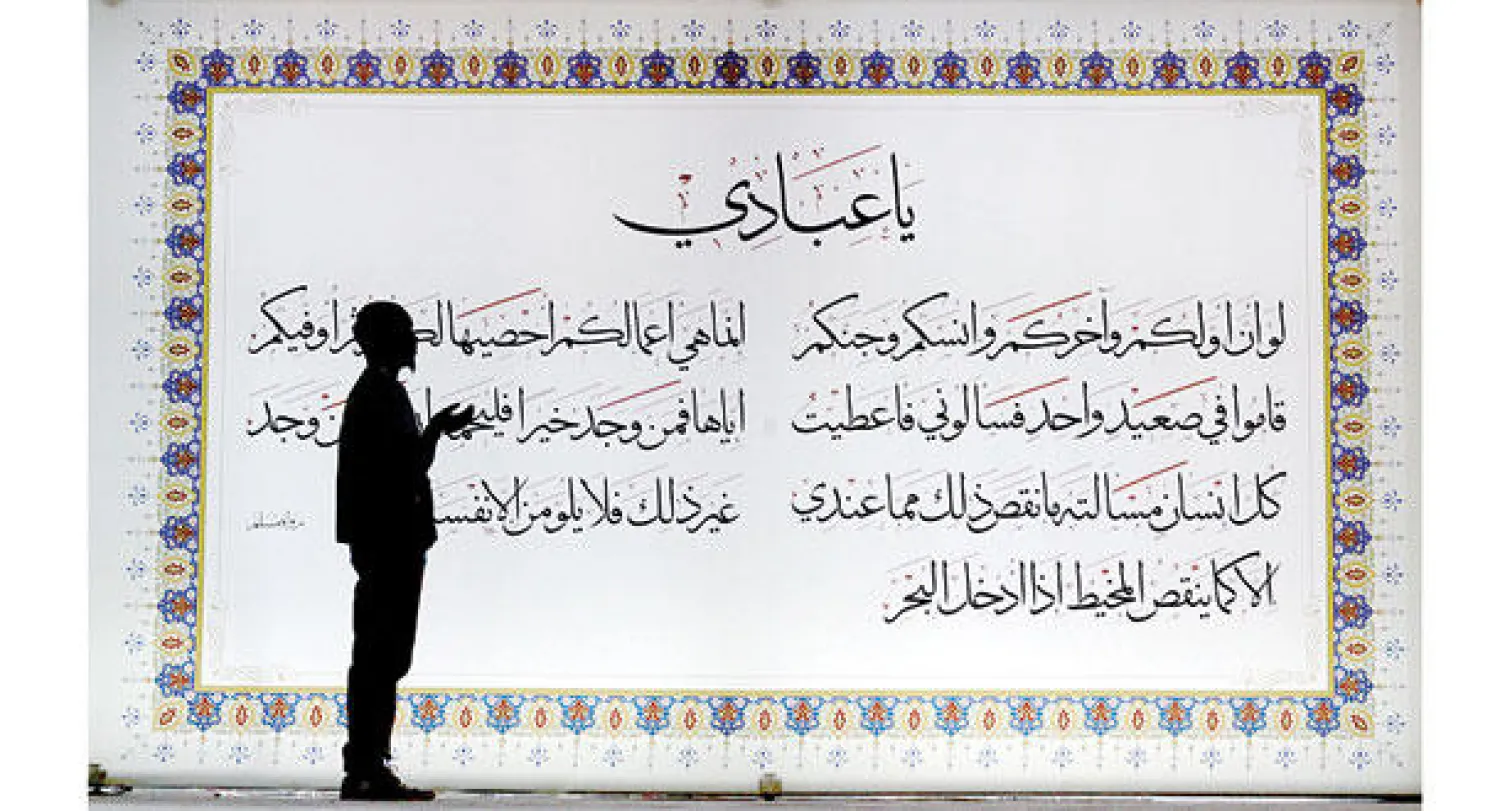 يا عبادي
لو ان اولكم وآخركم وانسكم وجنكم
قاموا في صعيد واحد فسالوني فاعطيت
كل انسان مسالته ما نقص ذلك مما عندي
الا كما ينقص المخيط اذا ادخل البحر
انما هي اعمالكم احصيها اوفيكم
اياها فمن وجد خيرا وجد
غير ذلك فلا يلومن الا